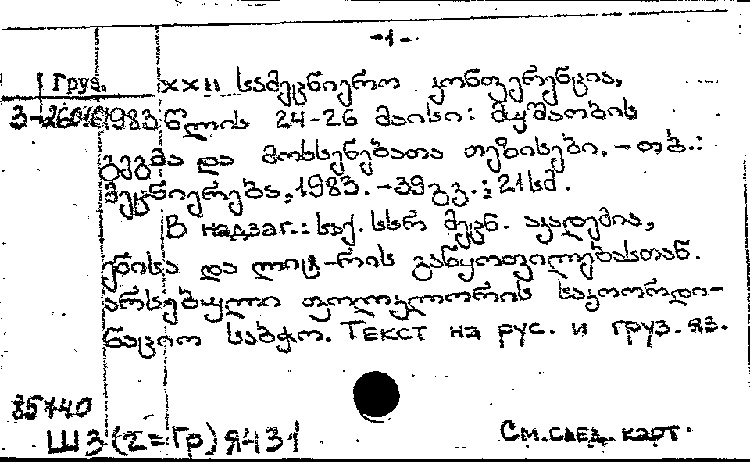 -1-
Груз. XXII სამეცნიერო კონფერენცია,
3-26016 1983 წლის 24-26 მაისი: მუშაობის
გეგმა და მოხსენებათა თეზისები. - თბ.:
მეცნიერება, 1983. - 39 გვ.; 21 სმ.
В надзаг.: საქ. სსრ მეცნ. აკადემია,
ენისა და ლიტ-რის განყოფილებასთან
არსებული ფოლკლორის საკოორდი-
ნაციო საბჭო. Текст на рус. и груз. яз.
85140
Ш3(2=Гр)я431 См. след. карт.